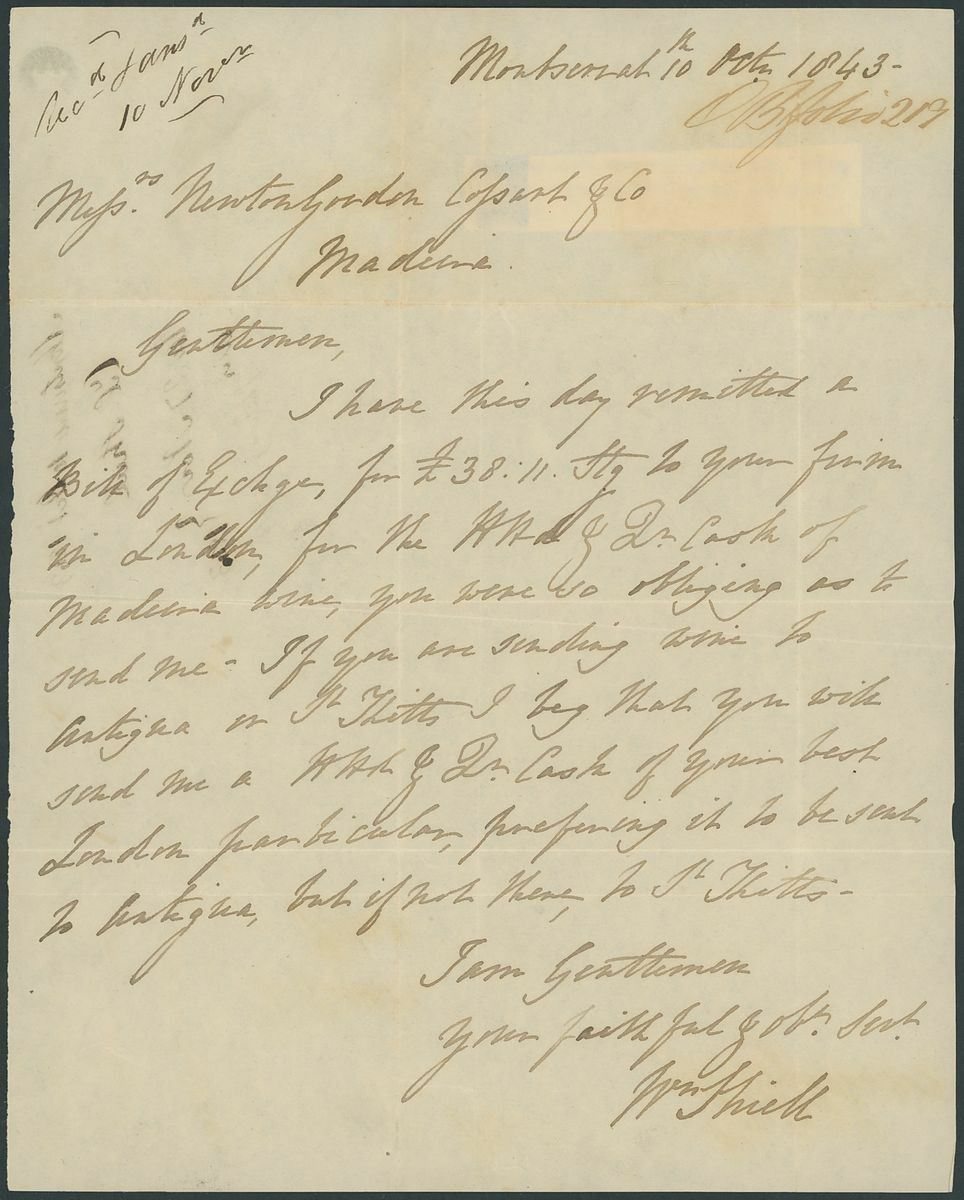 Montserrat 10th Octr 1843-
folio 219
10 Novr
Messrs. Newton Gordon Cossart & Co
Madeira.
Gentlemen,
I have this day remitted a
Bill of Exchge, for £38:11. Stg to your firm
in London, for the HHd & Qr. Cask of
Madeira wine, you were so obliging as to
send me- If you are sending wine to
Antigua or St Kitts I beg that you will
send me a HHd & Qr. Cask of your best
London particular, prefering it to be sent
to Antigua, but if not there, to St Kitts-
I am Gentlemen
your faithful & obt. Sert.
Wm Shiell